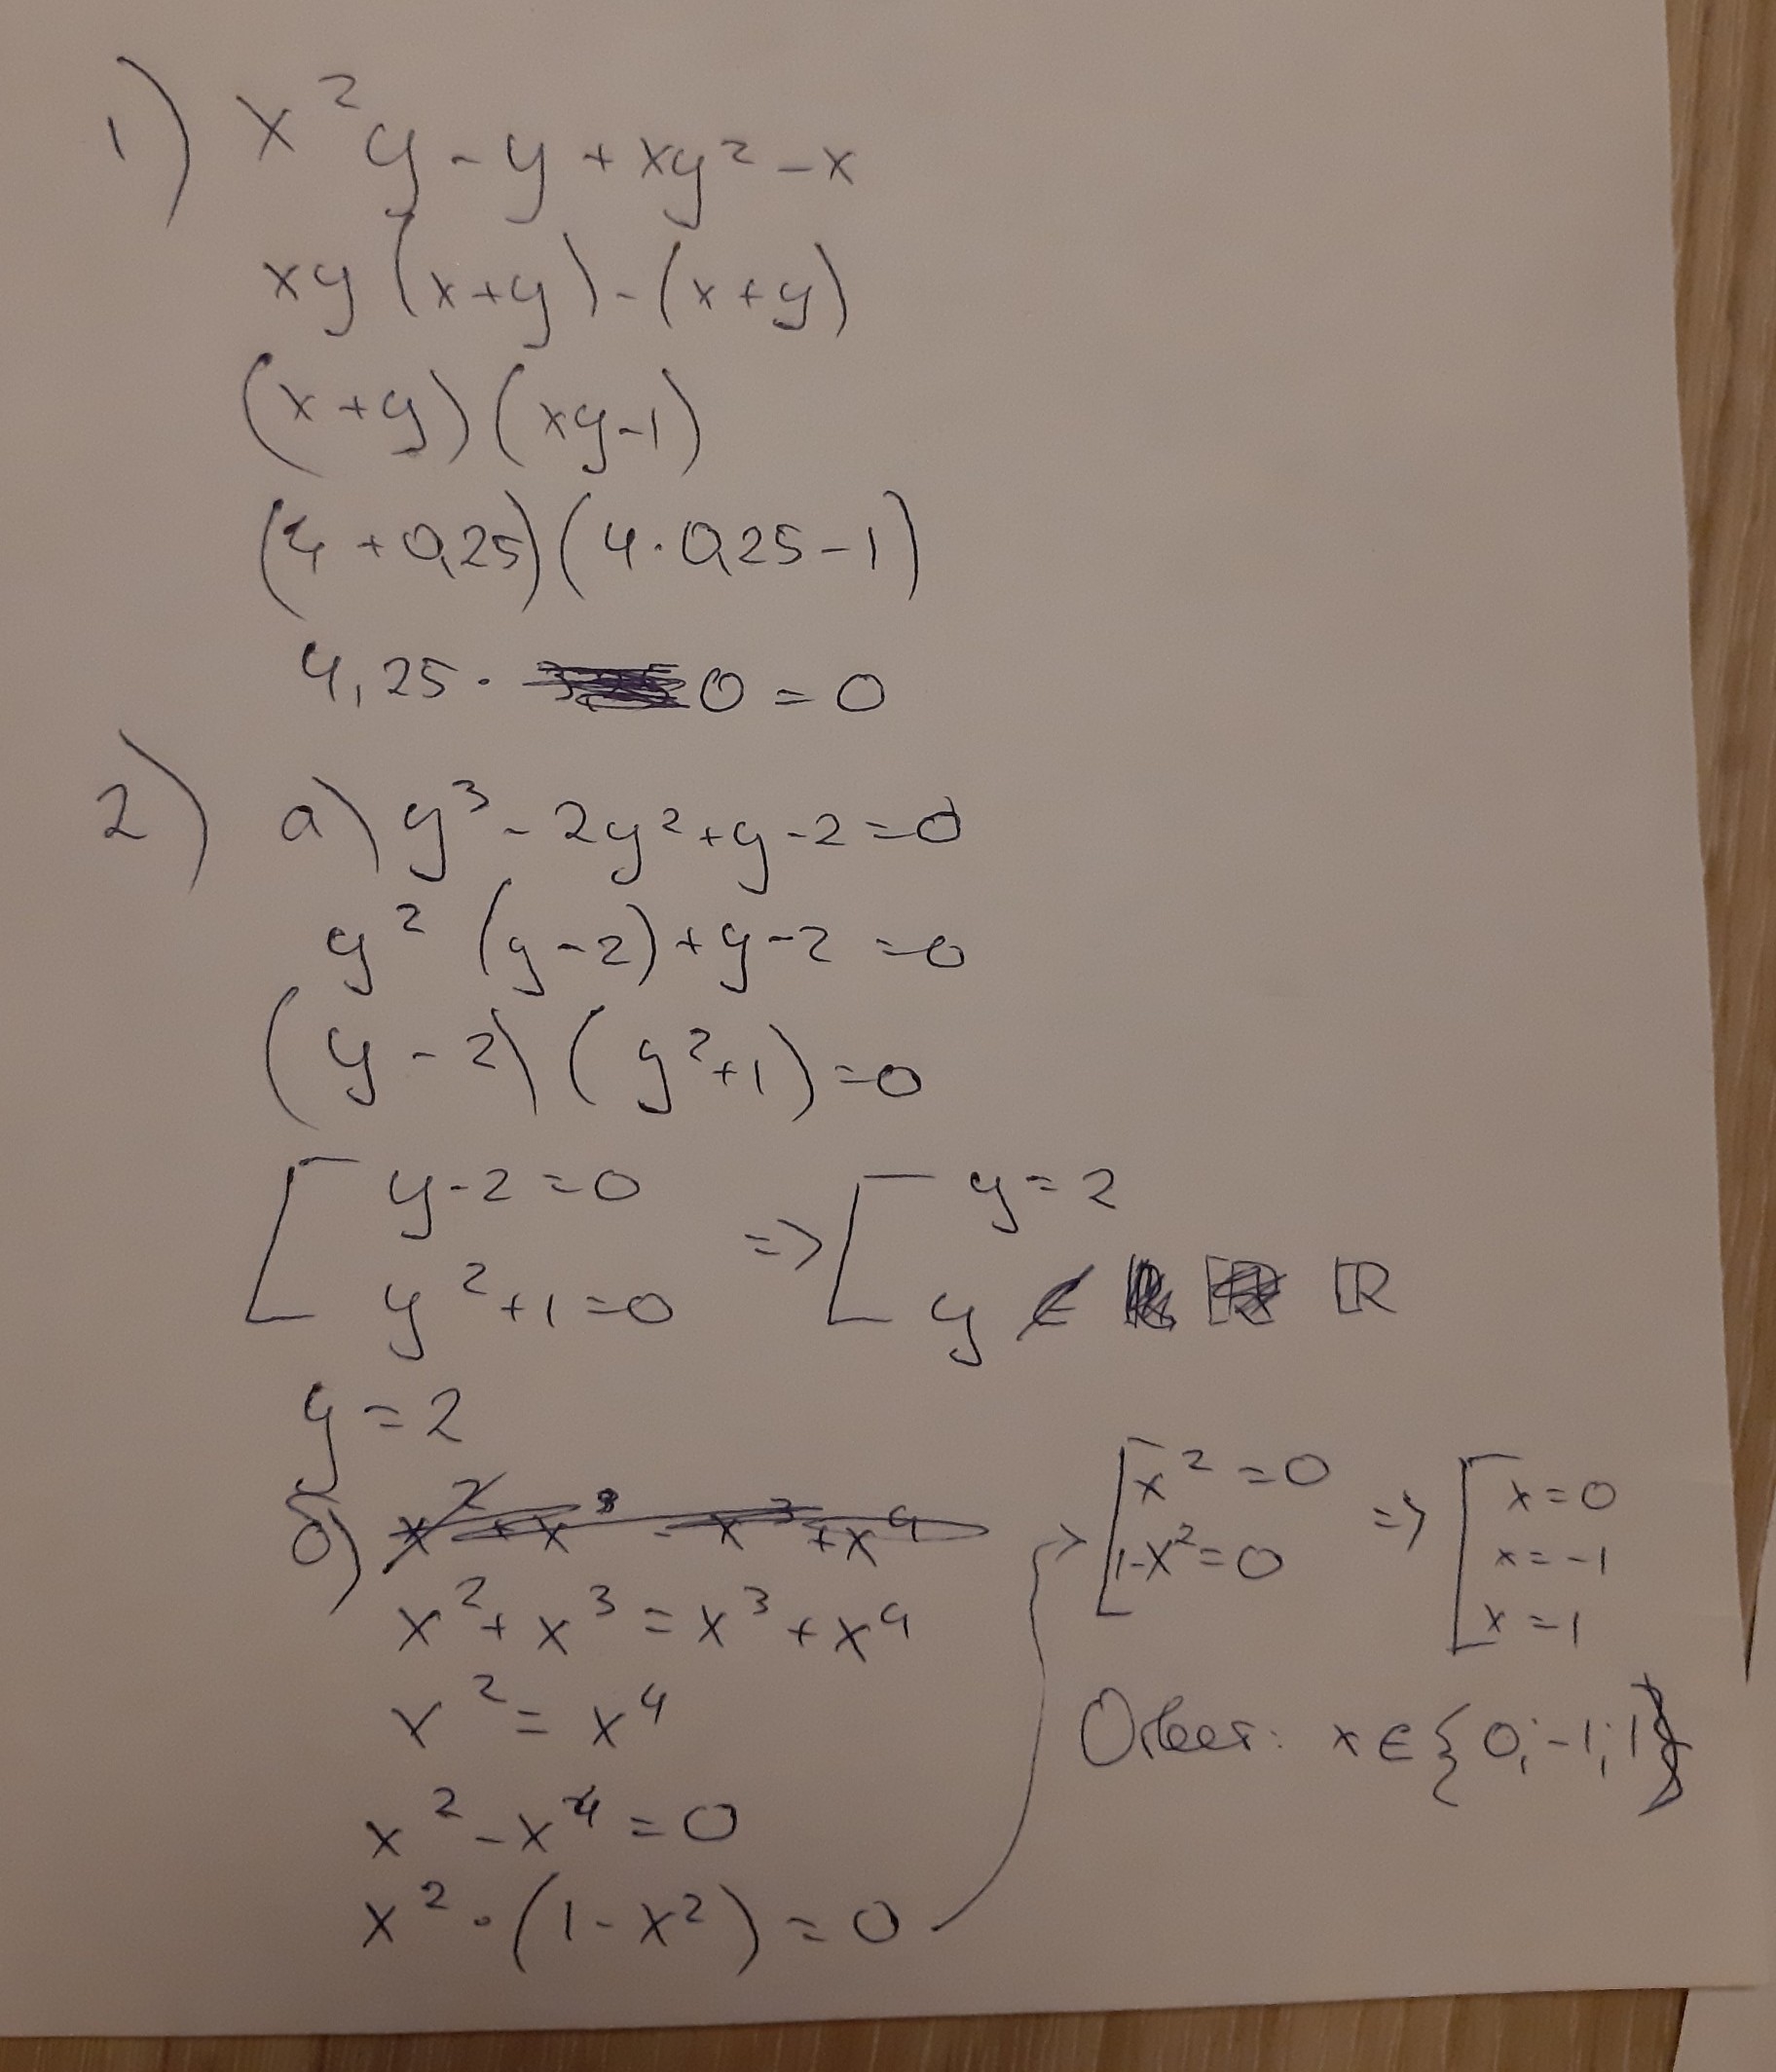 1) x² y - y + xy² - x
xy (x+y) - (x+y)
(x+y) (xy-1)
(4 + 0,25) (4 · 0,25 - 1)
4,25 · 0 = 0
2) а) y³ - 2y² + y - 2 = 0
y² (y-2) + y - 2 = 0
(y - 2) (y² + 1) = 0
[ y - 2 = 0 => [ y = 2
y² + 1 = 0 y ∉ ℝ
y = 2
б) x² + x³ - x³ + x⁴
x² + x³ = x³ + x⁴
x² = x⁴
x² - x⁴ = 0
x² · (1 - x²) = 0
-> [ x² = 0 => [ x = 0
1 - x² = 0 x = -1
x = 1
Ответ: x ∈ {0; -1; 1}